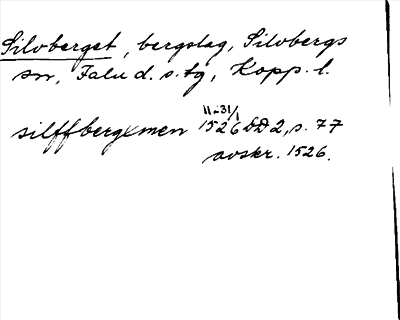 Silvberget, bergslag, Silvbergs
sn, Falu d. s. tg, Kopp. l.
11-31/1
silffbergxmen 1526 DD 2, s. 77
avskr. 1526.